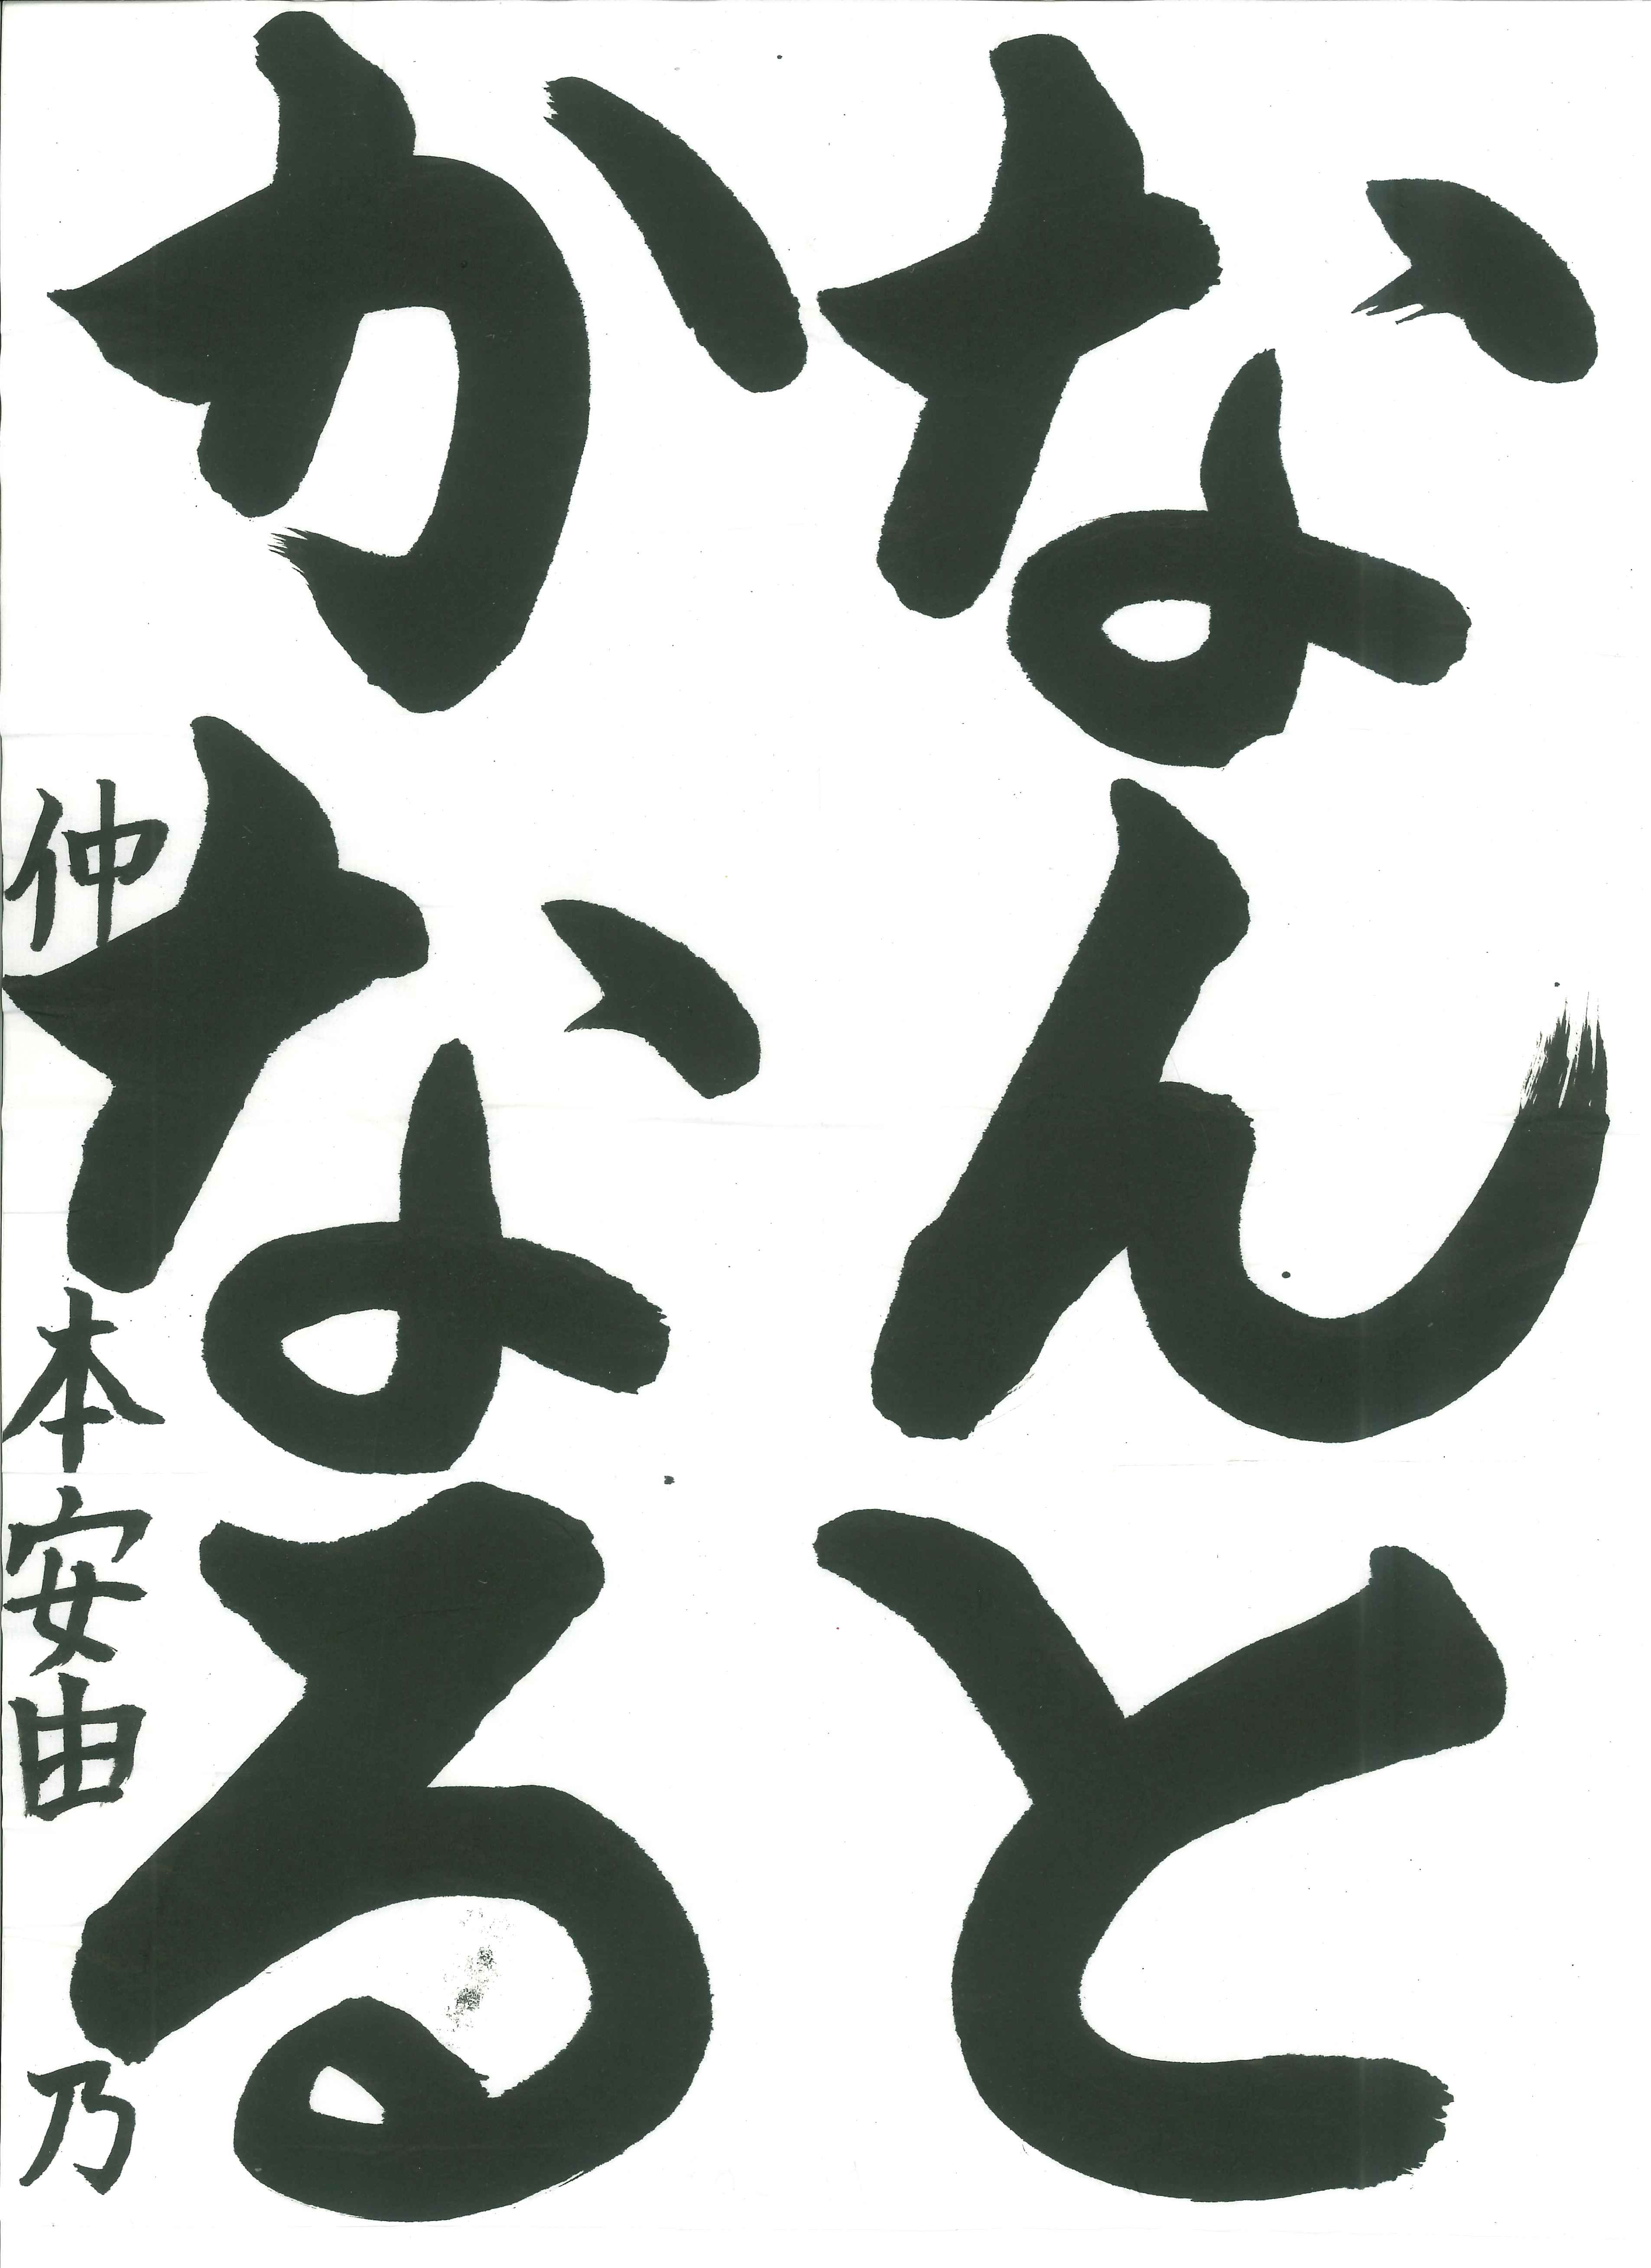 なんと
かなる
仲本安由乃